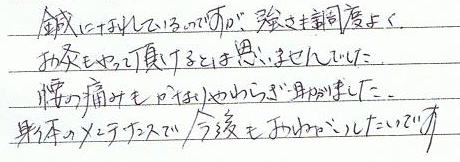 鍼になれているのですが、強さも調度よく、
お灸もやって頂けるとは思いませんでした。
腰の痛みもかなりやわらぎ助かりました。
身体のメンテナンスで今後もおねがいしたいです